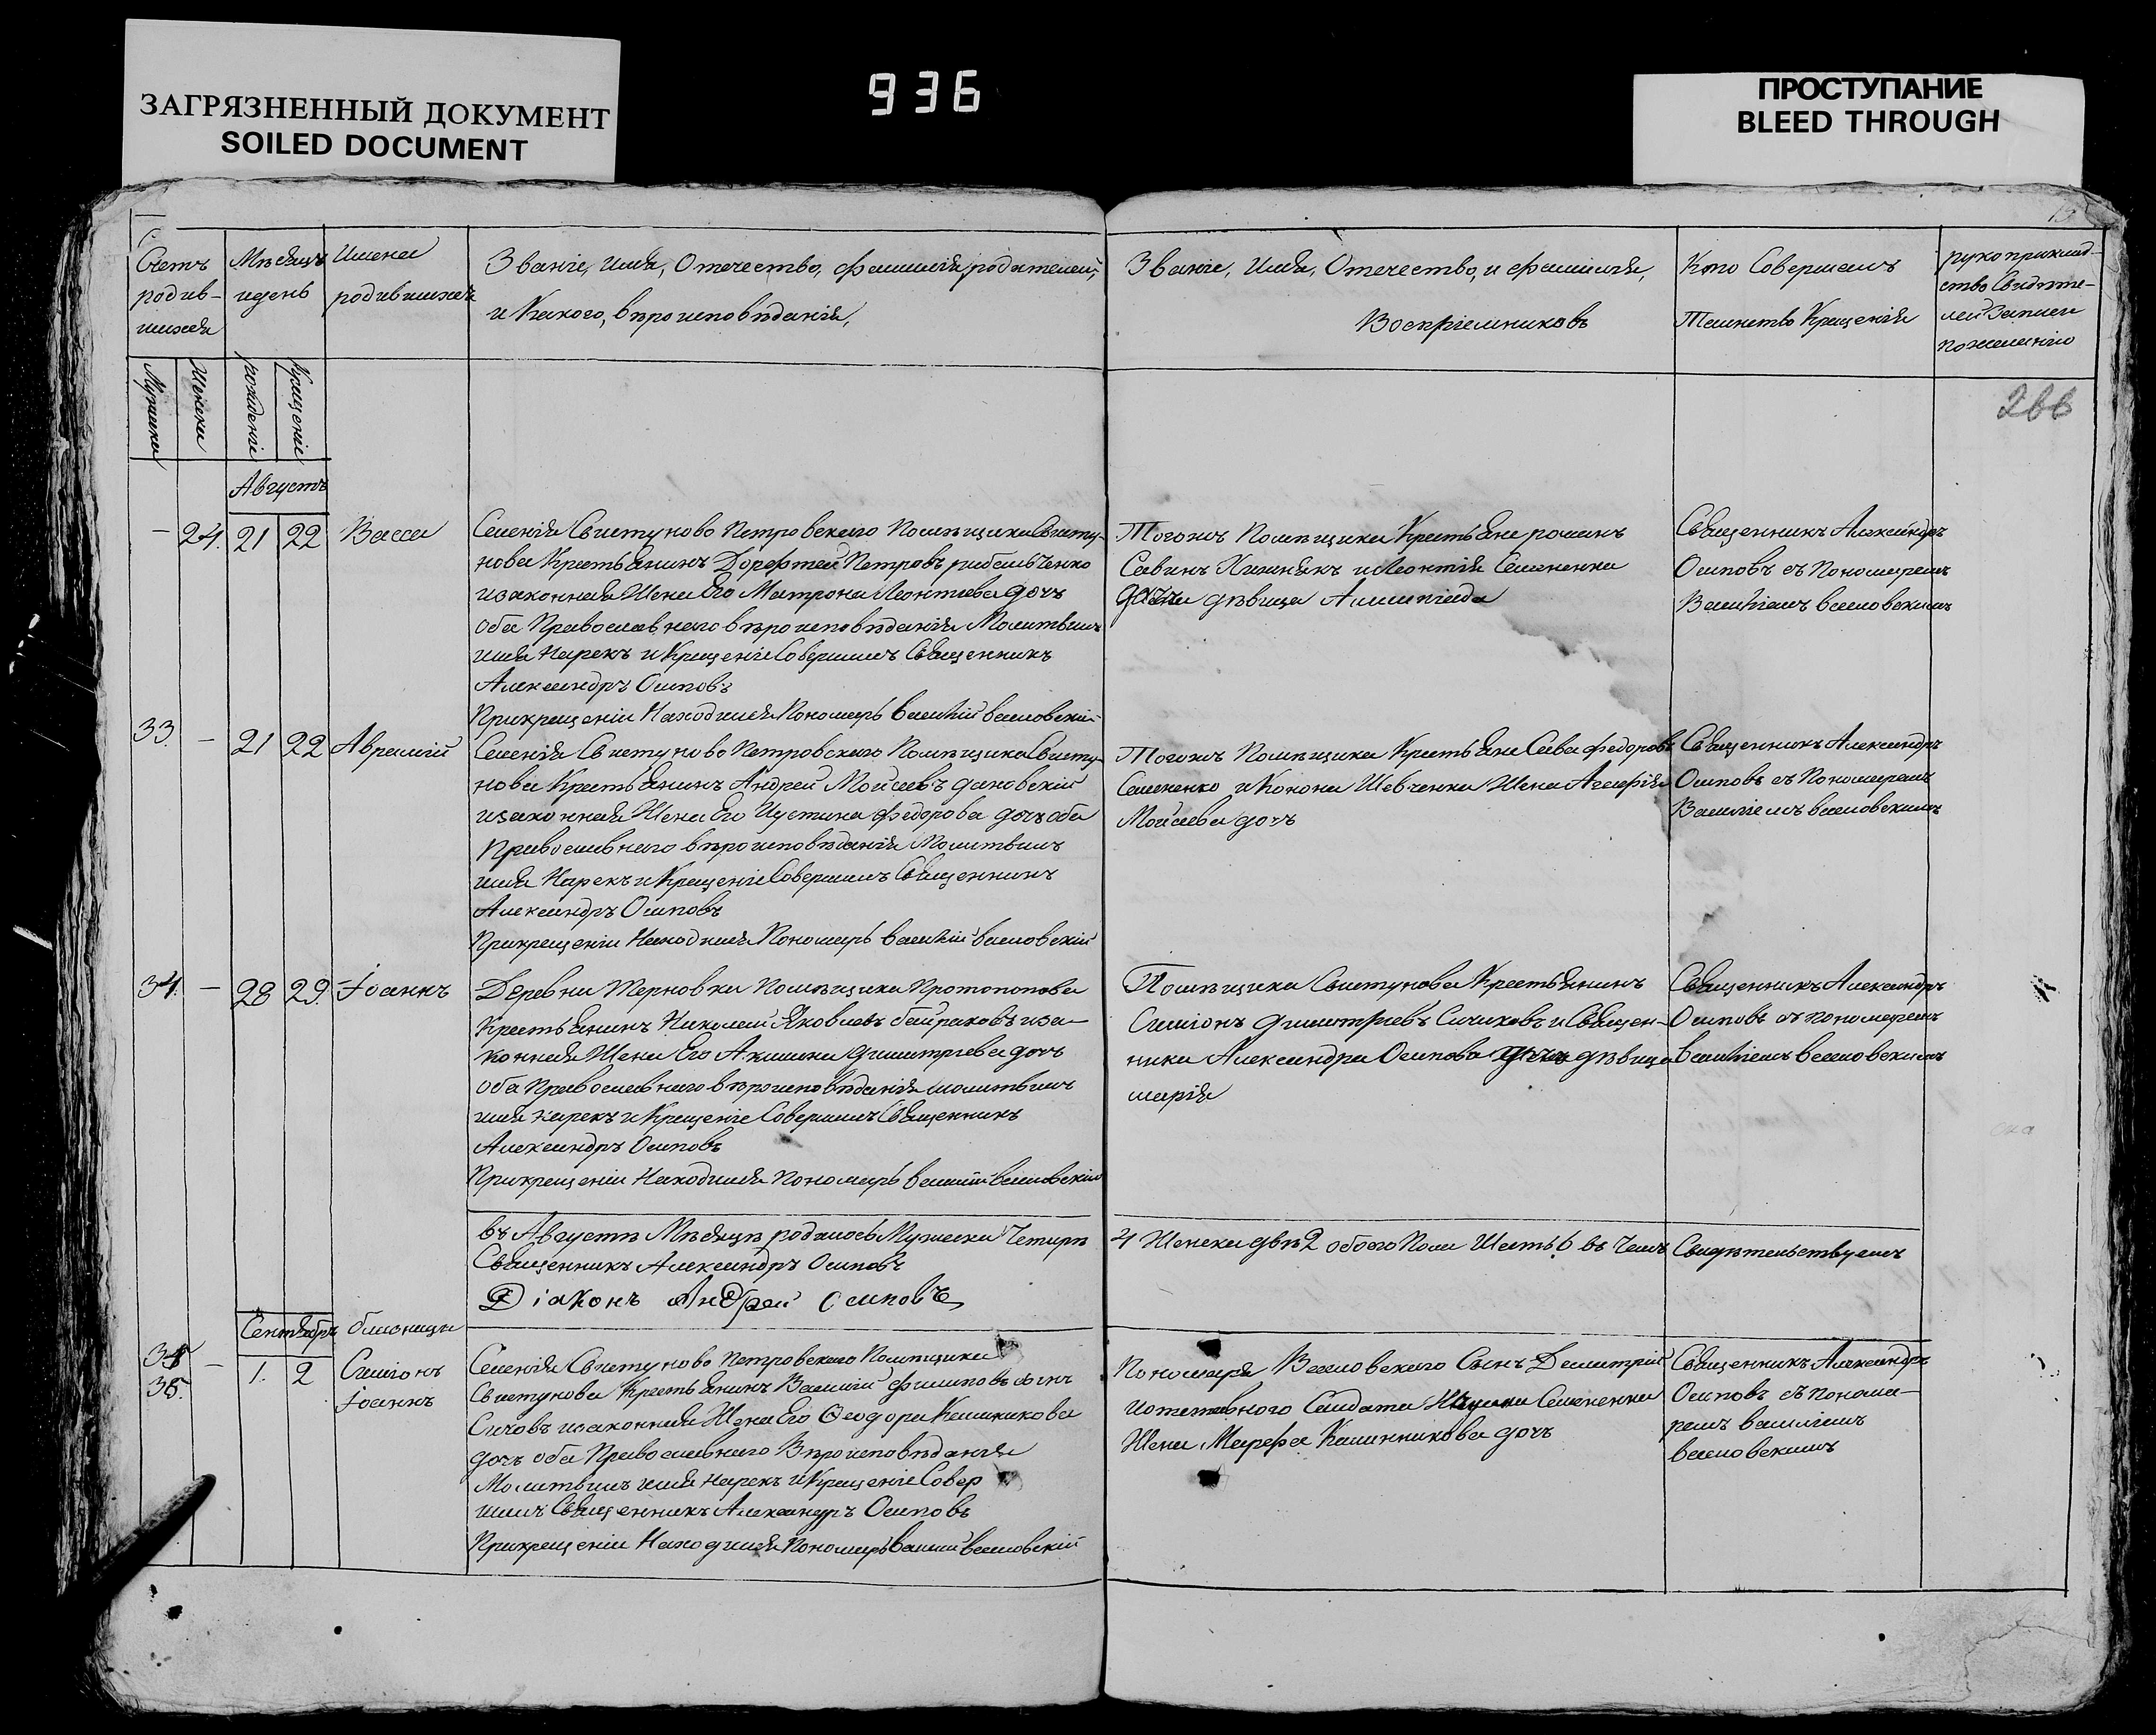 ЗАГРЯЗНЕННЫЙ ДОКУМЕНТ
SOILED DOCUMENT
936
ПРОСТУПАНИЕ
BLEED THROUGH
15
Счетъ родив-шихся
Мѣсяцъ идень
Имена родившихся
Званіе, Имя, Отечество, фамилія, родителей,
и Какого, вѣроисповѣданія,
Званіе, Имя, Отечество, и фамилія,
Воспріемниковъ
Кто Совершалъ
Таинство Крещенія
рукоприклад-
ство Свидѣте-
лей Записи
пожеланію
Мужеска
Женска
рожденіе
Крещеніе
266
Августъ
– 24. 21 22 Васса
Селенія Свистуново Петровскаго Помѣщика Свисту-
нова Крестьянинъ Дорофтей Петровъ
изаконная Жена Его Матрона Леонтиева дочь
оба Православнаго вѣроисповѣданія Молитвилъ
имя Нарекъ и Крещеніе Совершилъ Священникъ
Александръ Осиповъ
Прикрещеніи Находился Пономарь Василій веселовскій
Тогожъ Помѣщика Крестьяне романъ
Савинъ Хижнякъ и Леонтія Семененка
дочь дѣвица
Священникъ Александръ
Осиповъ съ Пономаремъ
Василіемъ веселовскимъ
33. – 21 22 Аврамій
Селенія Свистуново Петровского Помѣщика Свисту-
нова Крестьянинъ Андрей Мойсеевъ
изаконная Жена Его Иустина Федорова дочь оба
Православнаго вѣроисповѣданія Молитвилъ
имя Нарекъ и Крещеніе Совершилъ Священникъ
Александръ Осиповъ
Прикрещеніи Находился Пономарь василій веселовскій
Тогожъ Помѣщика Крестьяне Сава Федоровъ
Семененко и Конона Шевченка Жена Агафія
Мойсеева дочь
Священникъ Александръ
Осиповъ съ Пономаремъ
Василіемъ веселовскимъ
34. – 28 29. Іоаннъ
Деревни Терновки Помѣщика Протопопова
Крестьянинъ Николай Яковлевъ байраковъ иза-
конная Жена Его Акилина Димитріева дочь
оба Православнаго вѣроисповѣданія молитвилъ
имя нарекъ и Крещеніе Совершилъ Священникъ
Александръ Осиповъ
Прикрещеніи Находился Пономарь василій веселовскій
Помѣщика Свистунова Крестьянинъ
Симіонъ Димитріевъ Сичиковъ и Священ-
ника Александра Осипова дочь дѣвица
марія
Священникъ Александръ
Осиповъ съ пономаремъ
василіемъ веселовскимъ
въ Августѣ Мѣсяцѣ родилось Мужеска Четире
4 Женска двѣ 2 обоего Пола Шесть 6 въ Чемъ Свидѣтельствуемъ
Священникъ Александръ Осиповъ
Діаконъ Андрей Осиповъ
Сентябрь близницы
35. – 1. 2 Симіонъ
36. Іоаннъ
Селенія Свистуново Петровскаго Помѣщика
Свистунова Крестьянинъ Василій Филиповъ сынъ
Сичовъ изаконная Жена Его Феодора Калиникова
дочь оба Православнаго Вѣроисповѣданія
Молитвилъ имя нарекъ и Крещеніе Совер
шилъ Священникъ Александръ Осиповъ
Прикрещеніи Находился Пономарь василій веселовскій
Пономаря Веселовскаго Сынъ Димитрій
иотставного Салдата Семененка
Жена Марфа Калинникова дочь
Священникъ Александръ
Осиповъ съ понома-
ремъ василіемъ
веселовскимъ